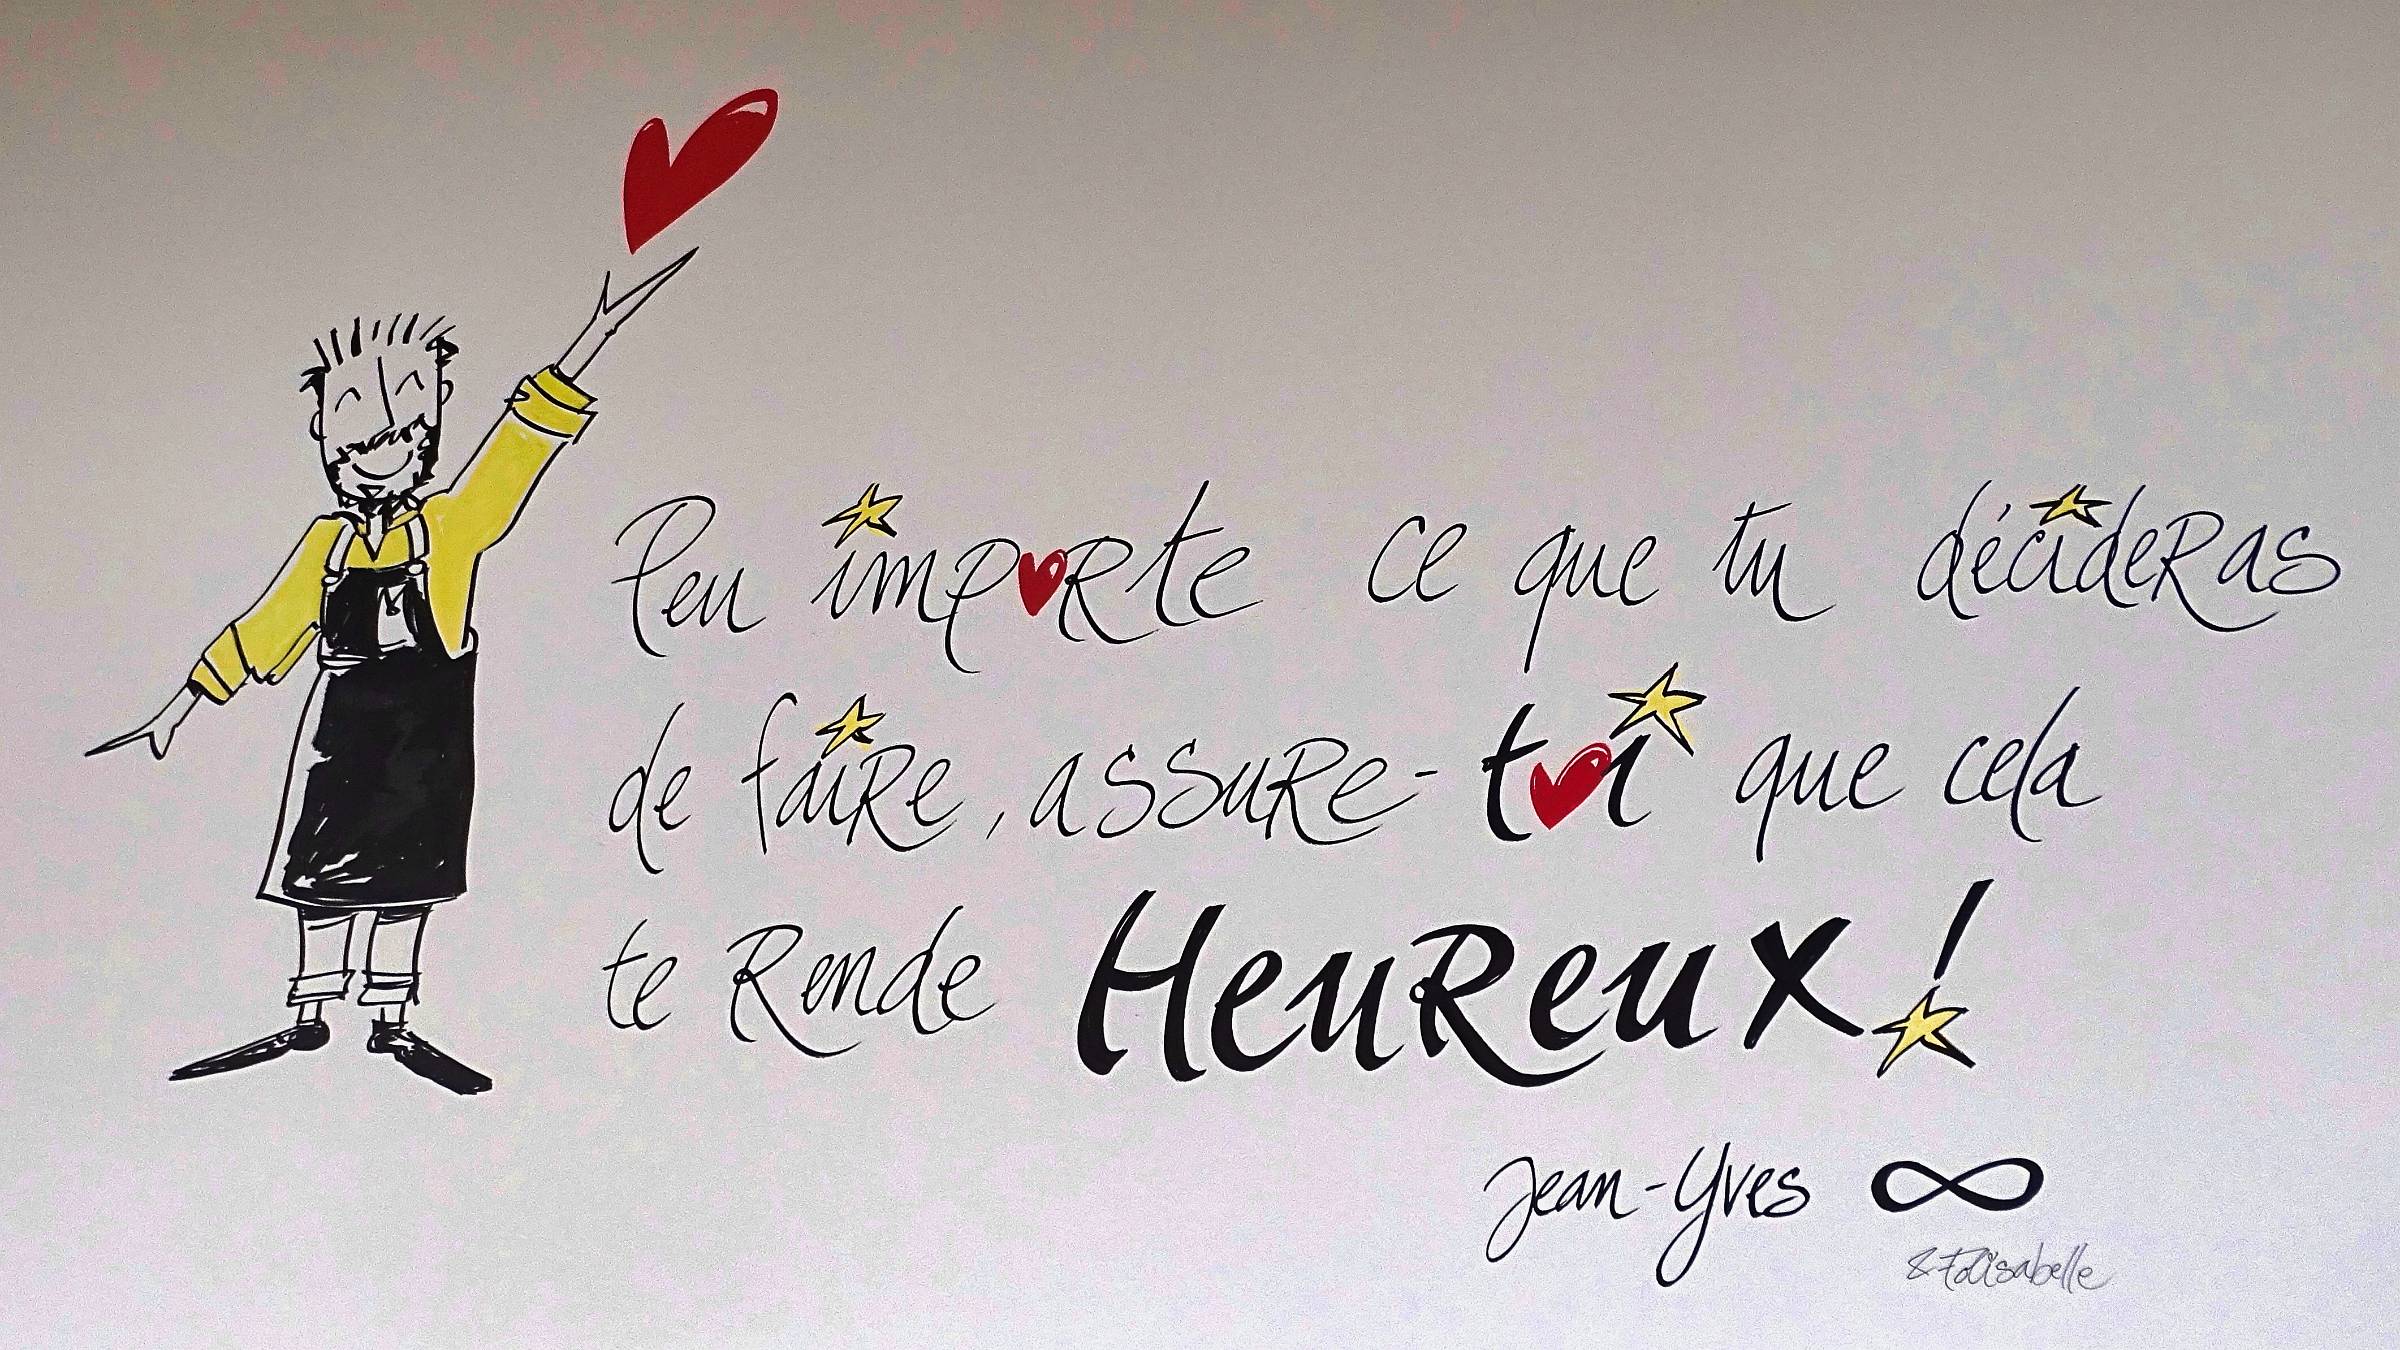 Peu importe ce que tu décideras
de faire, assure-toi que cela
te Rende Heureux!
Jean-Yves ∞